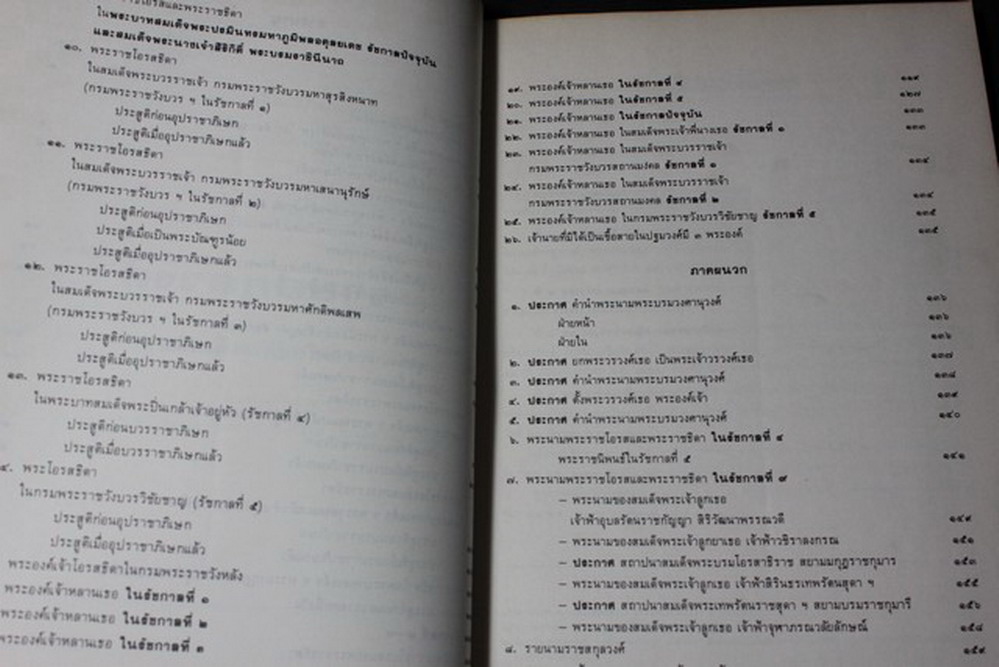 โอรสและพระราชธิดา
ในพระบาทสมเด็จพระปรมินทรมหาภูมิพลอดุลยเดช รัชกาลปัจจุบัน
และสมเด็จพระนางเจ้าสิริกิติ์ พระบรมราชินีนาถ
๑๐. พระราชโอรสธิดา
ในสมเด็จพระบวรราชเจ้า กรมพระราชวังบวรมหาสุรสิงหนาท
(กรมพระราชวังบวร ฯ ในรัชกาลที่ ๑)
ประสูติก่อนอุปราชาภิเษก
ประสูติเมื่ออุปราชาภิเษกแล้ว
๑๑. พระราชโอรสธิดา
ในสมเด็จพระบวรราชเจ้า กรมพระราชวังบวรมหาเสนานุรักษ์
(กรมพระราชวังบวร ฯ ในรัชกาลที่ ๒)
ประสูติก่อนอุปราชาภิเษก
ประสูติเมื่อเป็นพระบัณฑูรน้อย
ประสูติเมื่ออุปราชาภิเษกแล้ว
๑๒. พระราชโอรสธิดา
ในสมเด็จพระบวรราชเจ้า กรมพระราชวังบวรมหาศักดิพลเสพ
(กรมพระราชวังบวร ฯ ในรัชกาลที่ ๓)
ประสูติก่อนอุปราชาภิเษก
ประสูติเมื่ออุปราชาภิเษกแล้ว
๑๓. พระราชโอรสธิดา
ในพระบาทสมเด็จพระปิ่นเกล้าเจ้าอยู่หัว (รัชกาลที่ ๔)
ประสูติก่อนบวรราชาภิเษก
ประสูติเมื่อบวรราชาภิเษกแล้ว
๔. พระโอรสธิดา
ในกรมพระราชวังบวรวิชัยชาญ (รัชกาลที่ ๕)
ประสูติก่อนอุปราชาภิเษก
ประสูติเมื่ออุปราชาภิเษกแล้ว
พระองค์เจ้าโอรสธิดาในกรมพระราชวังหลัง
พระองค์เจ้าหลานเธอ ในรัชกาลที่ ๑
พระองค์เจ้าหลานเธอ ในรัชกาลที่ ๒
พระองค์เจ้าหลานเธอ ในรัชกาลที่ ๓
๑๙. พระองค์เจ้าหลานเธอ ในรัชกาลที่ ๔ ๑๑๙
๒๐. พระองค์เจ้าหลานเธอ ในรัชกาลที่ ๕ ๑๒๗
๒๑. พระองค์เจ้าหลานเธอ ในรัชกาลปัจจุบัน ๑๓๓
๒๒. พระองค์เจ้าหลานเธอ ในสมเด็จพระเจ้าพี่นางเธอ รัชกาลที่ ๑ ๑๓๓
๒๓. พระองค์เจ้าหลานเธอ ในสมเด็จพระบวรราชเจ้า
กรมพระราชวังบวรสถานมงคล รัชกาลที่ ๑ ๑๓๔
๒๔. พระองค์เจ้าหลานเธอ ในสมเด็จพระบวรราชเจ้า
กรมพระราชวังบวรสถานมงคล รัชกาลที่ ๒ ๑๓๔
๒๕. พระองค์เจ้าหลานเธอ ในกรมพระราชวังบวรวิชัยชาญ รัชกาลที่ ๕ ๑๓๕
๒๖. เจ้านายที่มิได้เป็นเชื้อสายในปฐมวงศ์มี ๓ พระองค์ ๑๓๕
ภาคผนวก
๑. ประกาศ คำนำพระนามพระบรมวงศานุวงศ์ ๑๓๖
ฝ่ายหน้า ๑๓๖
ฝ่ายใน ๑๓๖
๒. ประกาศ ยกพระวรวงศ์เธอ เป็นพระเจ้าวรวงศ์เธอ ๑๓๗
๓. ประกาศ คำนำพระนามพระบรมวงศานุวงศ์ ๑๓๘
๔. ประกาศ ตั้งพระวรวงศ์เธอ พระองค์เจ้า ๑๓๙
๕. ประกาศ คำนำพระนามพระบรมวงศานุวงศ์ ๑๔๐
๖. พระนามพระราชโอรสและพระราชธิดา ในรัชกาลที่ ๔
พระราชนิพนธ์ในรัชกาลที่ ๕ ๑๔๑
๗. พระนามพระราชโอรสและพระราชธิดา ในรัชกาลที่ ๙
– พระนามของสมเด็จพระเจ้าลูกเธอ
เจ้าฟ้าอุบลรัตนราชกัญญา สิริวัฒนาพรรณวดี ๑๔๙
– พระนามของสมเด็จพระเจ้าลูกยาเธอ เจ้าฟ้าวชิราลงกรณ ๑๕๑
– ประกาศ สถาปนาสมเด็จพระบรมโอรสาธิราช สยามมกุฎราชกุมาร ๑๕๓
– พระนามของสมเด็จพระเจ้าลูกเธอ เจ้าฟ้าสิรินธรเทพรัตนสุดา ฯ ๑๕๕
– ประกาศ สถาปนาสมเด็จพระเทพรัตนราชสุดา ฯ สยามบรมราชกุมารี ๑๕๖
– พระนามของสมเด็จพระเจ้าลูกเธอ เจ้าฟ้าจุฬาภรณวลัยลักษณ์ ๑๕๘
๘. รายนามราชสกุลวงศ์ ๑๕๙